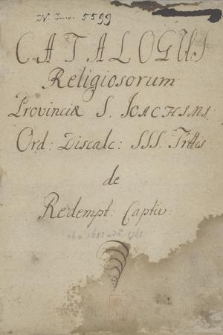 N. Inw. 5599
CATALOGUS
Religiosorum
Provinciæ S. IOACHIMI,
Ord: Discalc: SSS. Trītis
de
Redempt. Captiv: